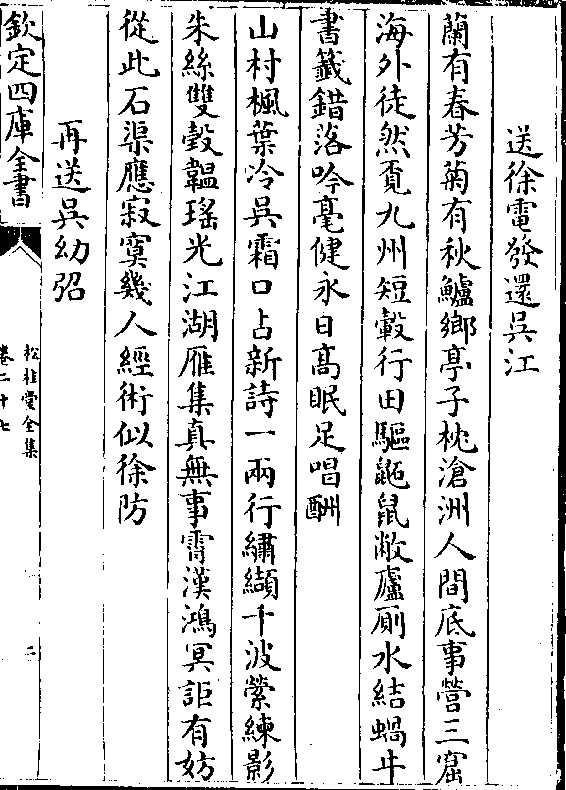 送徐電發還吳江
蘭有春芳菊有秋鱸鄉亭子枕滄洲人間底事營三窟
海外徒然覔九州短轂行田驅鼫鼠敝廬厠水結蝸牛
書籤錯落吟毫健永日髙眠足唱酬
山村楓葉冷吳霜口占新詩一兩行繡纈十波縈練影
朱絲雙轂韞瑤光江湖雁集真無事霄漢鴻冥詎有妨
從此石渠應寂寞幾人經術似徐防
再送吳幼弨
欽定四庫全書
松桂堂全集
卷二十七
二